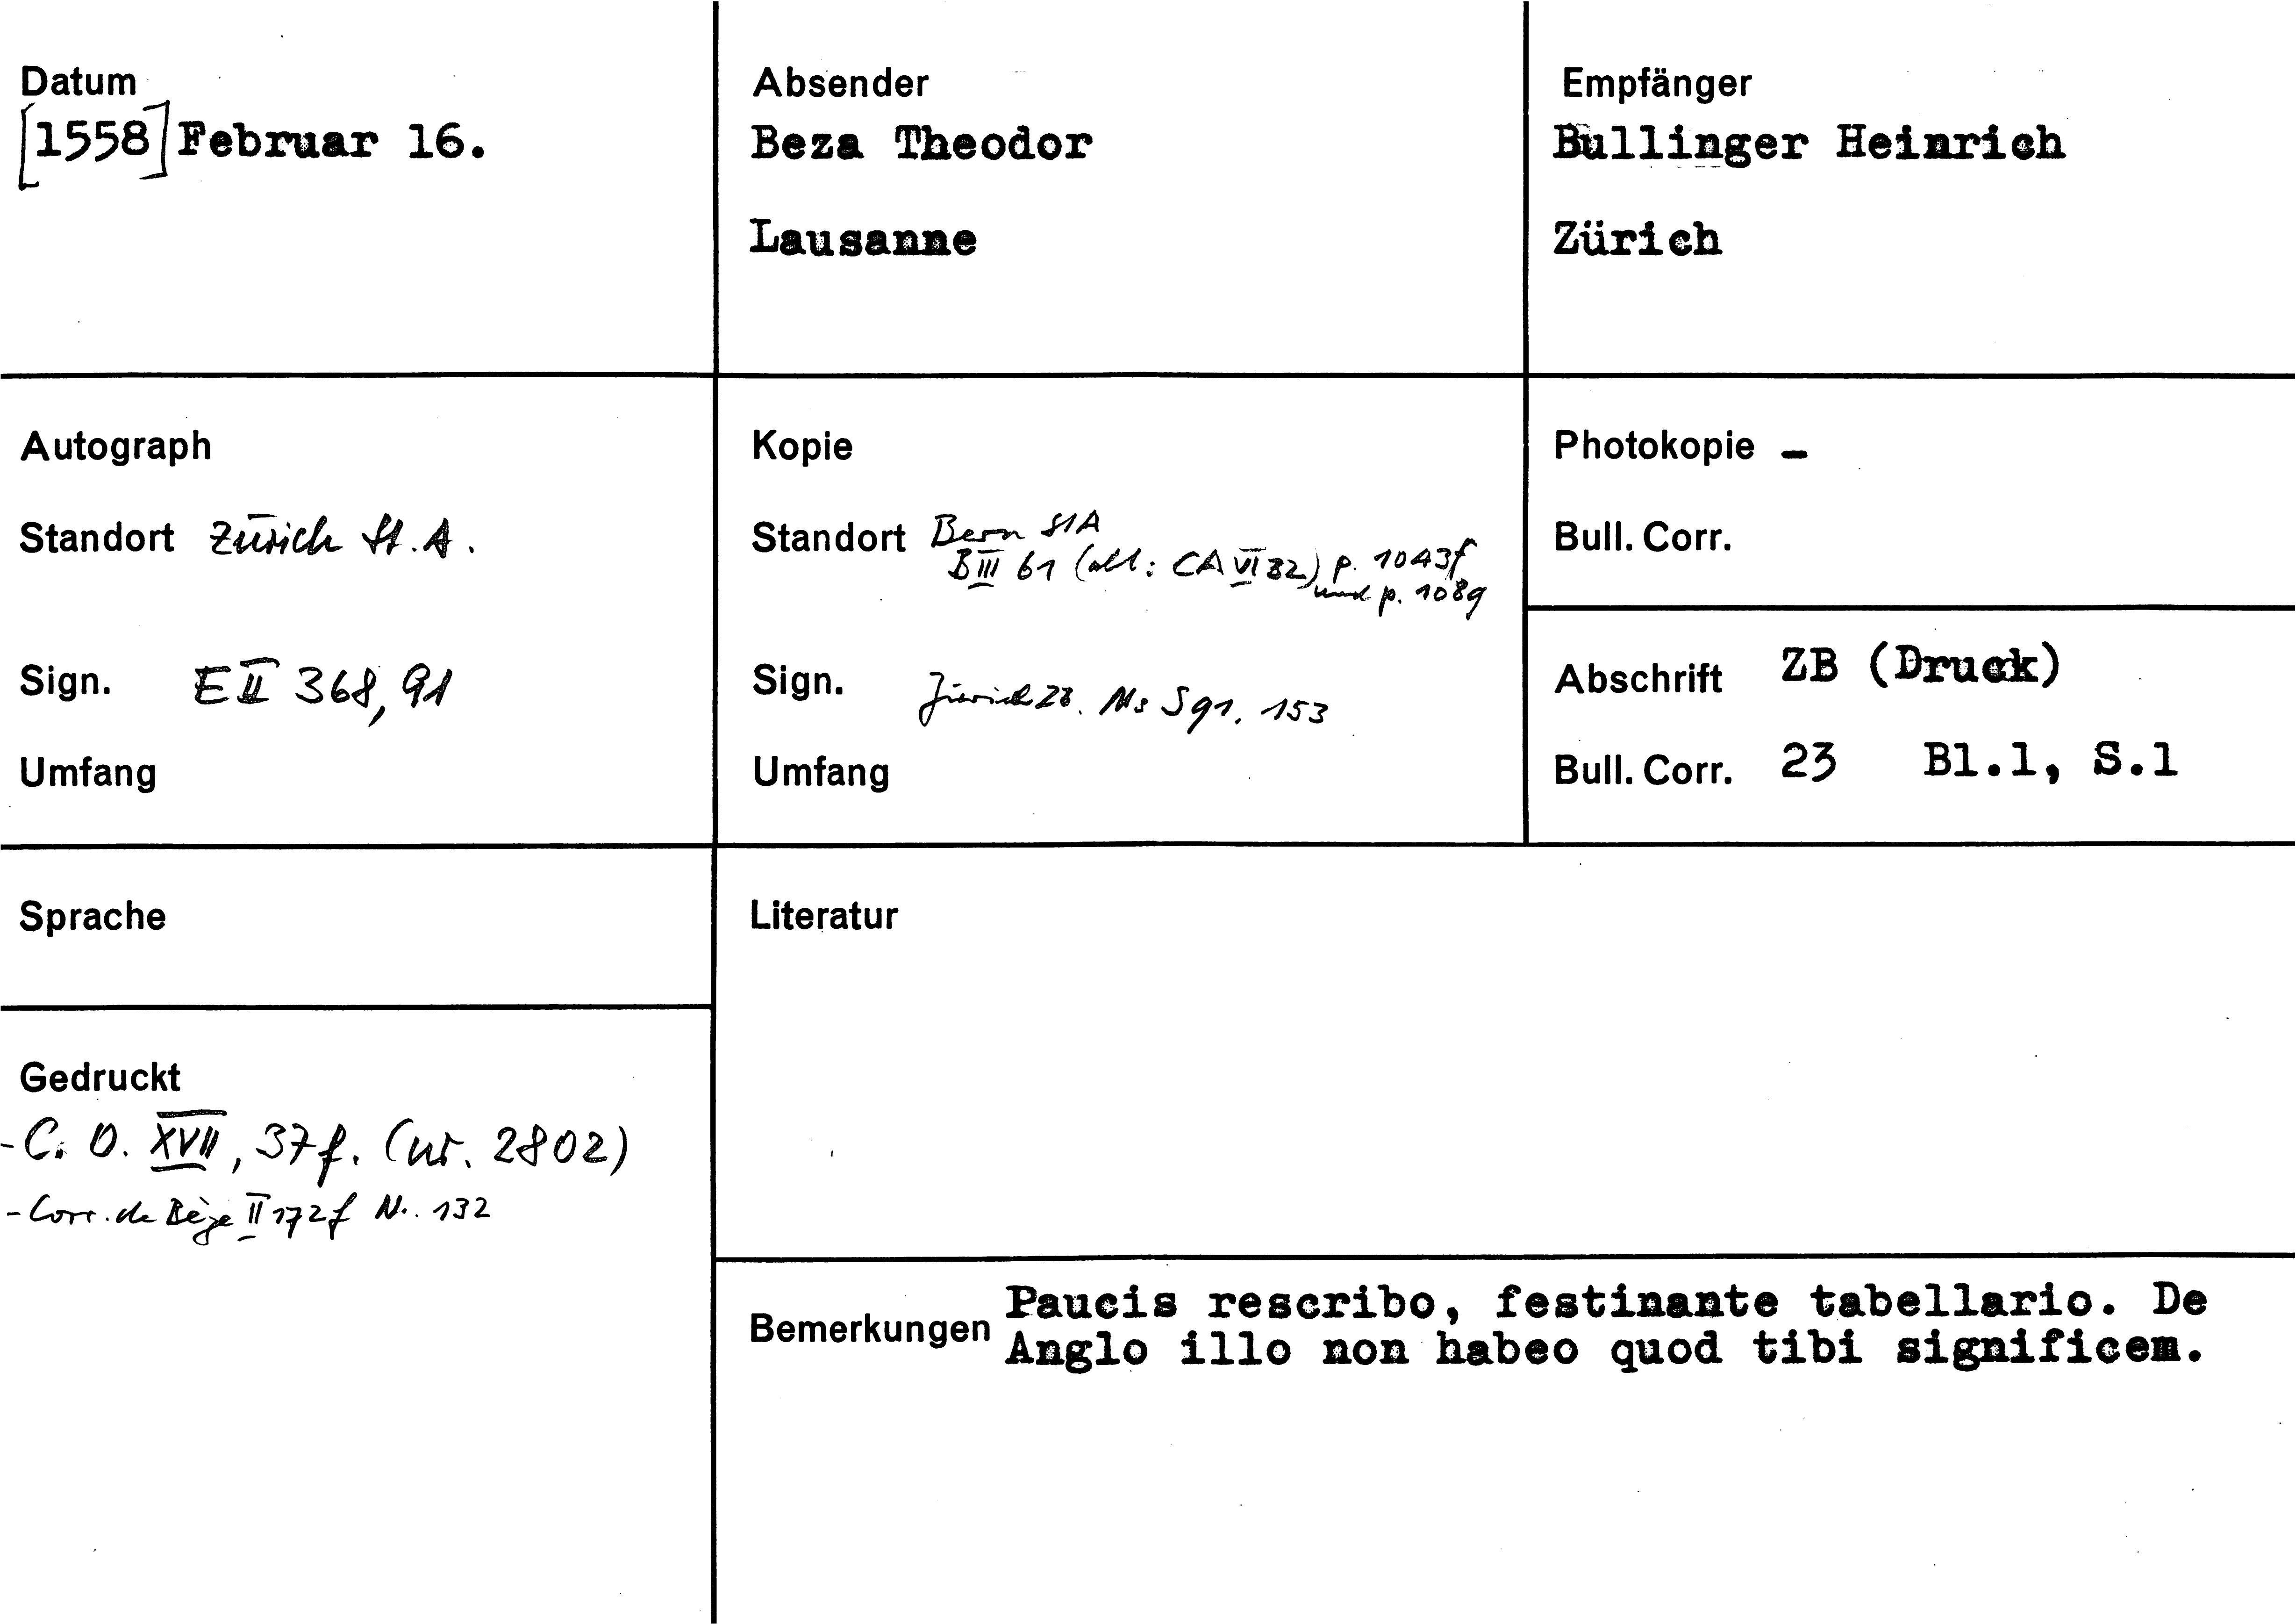 Datum
[1558] Februar 16.
Absender
Beza Theodor
Lausanne
Empfänger
Bullinger Heinrich
Zürich
Autograph
Standort Zürich St. A.
Sign. E II 368, 91
Umfang
Kopie
Standort Bern StA
B III 61 (alt: CA VI 82) p. 1043f
und p. 1089
Sign. Zürich ZB. Ms S 91, 153
Umfang
Photokopie -
Bull. Corr.
Abschrift ZB (Druck)
Bull. Corr. 23 Bl.1, S.1
Sprache
Literatur
Gedruckt
- C. O. XVII, 37f. (nr. 2802)
- Corr. de Bèze II 172f N. 132
Bemerkungen Paucis rescribo, festinante tabellario. De
Anglo illo non habeo quod tibi significem.